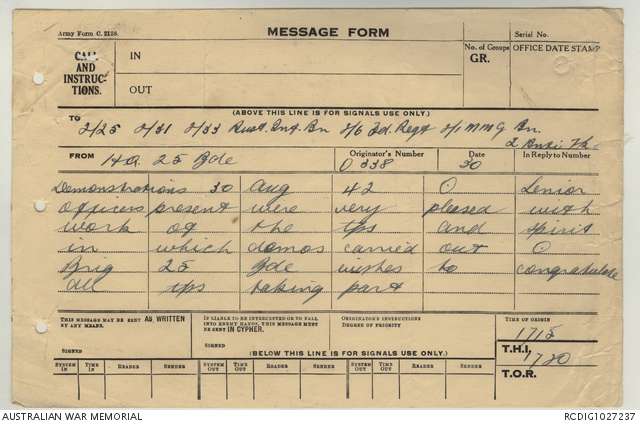 Army Form C. 2128.
MESSAGE FORM
Serial No.
CALL AND INSTRUCTIONS.
IN
OUT
No. of Groups
GR.
OFFICE DATE STAMP
(ABOVE THIS LINE IS FOR SIGNALS USE ONLY.)
TO
2/25 2/31 2/33 Aust. Inf. Bn 2/6 Fd. Regt 2/1 M M G Bn.
2 Anti Tk.
FROM
HQ 25 Bde
Originator's Number
O 338
Date
30
In Reply to Number
Demonstrations 30 Aug 42 O Senior
officers present were very pleased with
work of the tps and spirit
in which demos carried out O
Brig 25 Bde wishes to congratulate
all tps taking part
THIS MESSAGE MAY BE SENT AS WRITTEN
BY ANY MEANS.
SIGNED
IF LIABLE TO BE INTERCEPTED OR TO FALL
INTO ENEMY HANDS, THIS MESSAGE MUST
BE SENT IN CYPHER.
SIGNED
ORIGINATOR'S INSTRUCTIONS
DEGREE OF PRIORITY
TIME OF ORIGIN
1715
T.H.I.
1720
T.O.R.
(BELOW THIS LINE IS FOR SIGNALS USE ONLY.)
SYSTEM IN TIME IN READER SENDER SYSTEM OUT TIME OUT READER SENDER SYSTEM OUT TIME OUT READER SENDER
AUSTRALIAN WAR MEMORIAL
RCDIG1027237